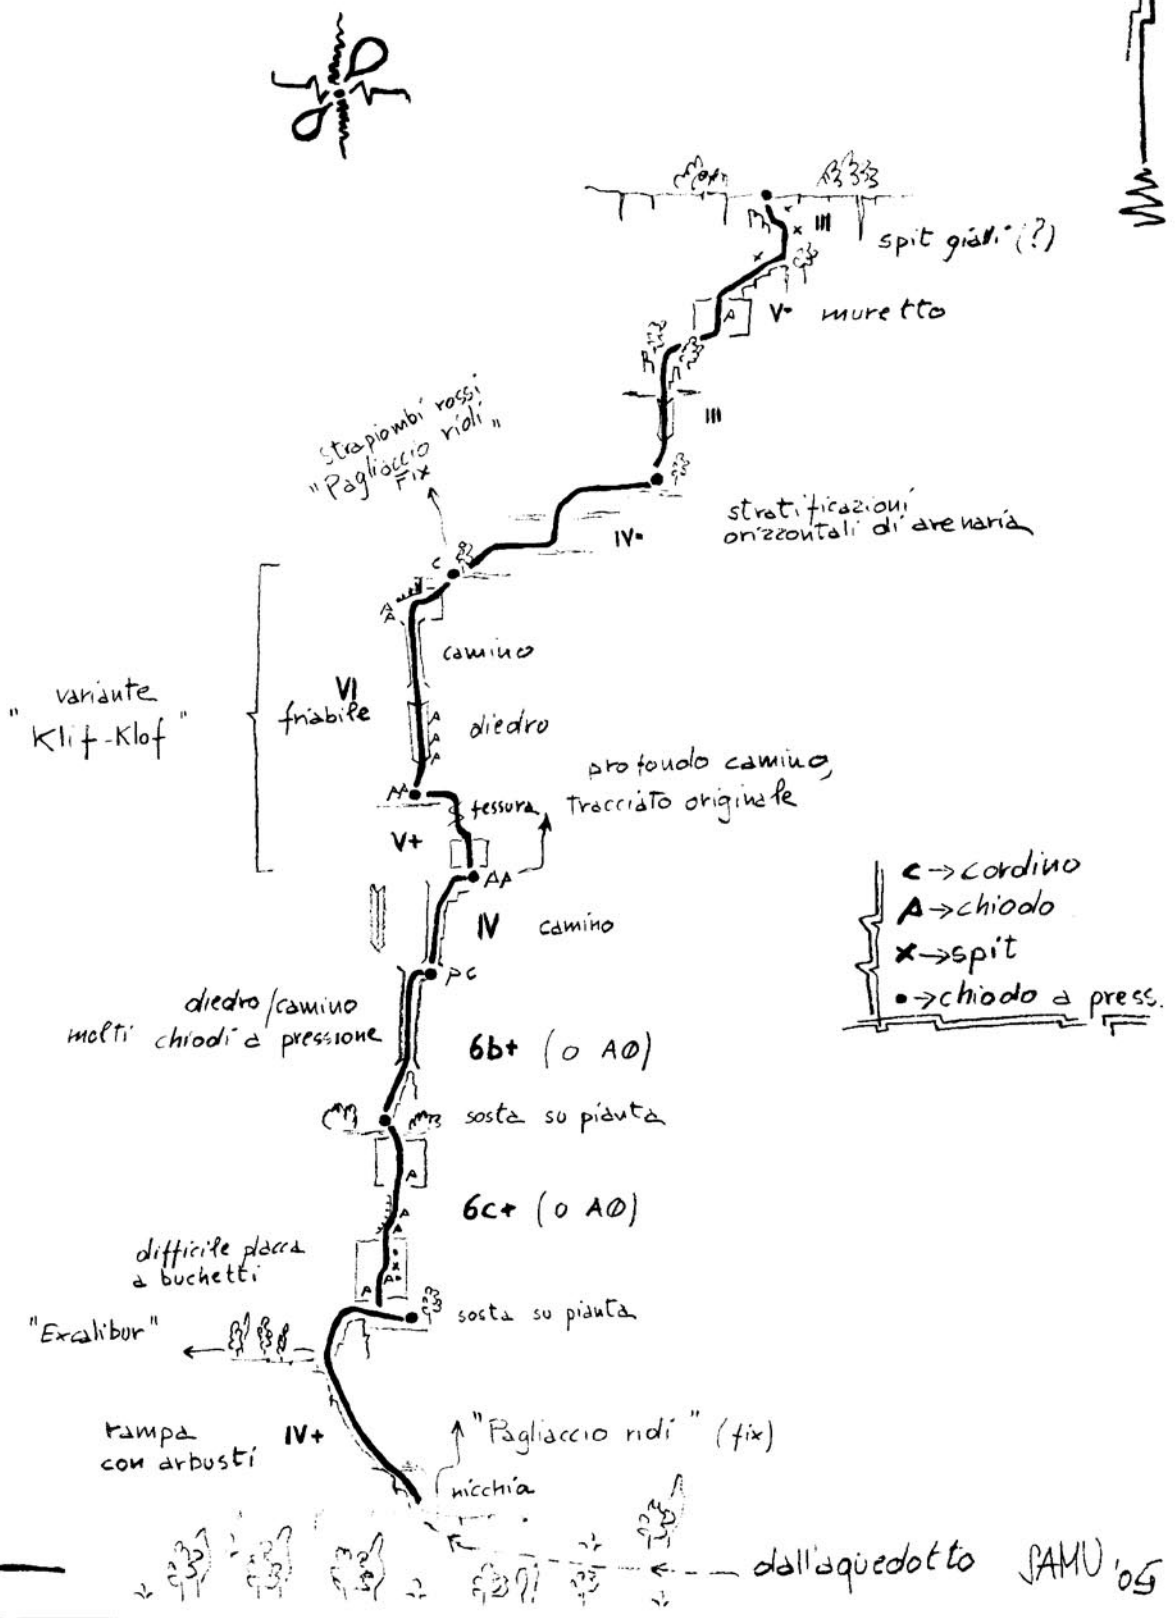 III
spit gialli (?)
V- muretto
A
strapiombi rossi
"Pagliaccio ridi"
FIX
III
stratificazioni
orizzontali di arenaria
IV-
C
A
A
camino
"variante
Klif-Klof"
VI
friabile
A
A
A
diedro
profondo camino,
tracciato originale
AA
fessura
V+
AA
C → cordino
A → chiodo
x → spit
• → chiodo a press.
IV camino
PC
diedro/camino
molti chiodi a pressione
6b+ (o AØ)
sosta su pianta
A
6c+ (o AØ)
A
A
difficile placca
a buchetti
x
x
A
A
"Excalibur"
sosta su pianta
rampa
con arbusti
IV+
"Pagliaccio ridi" (fix)
nicchia
dall'aquedotto
SAMU '05